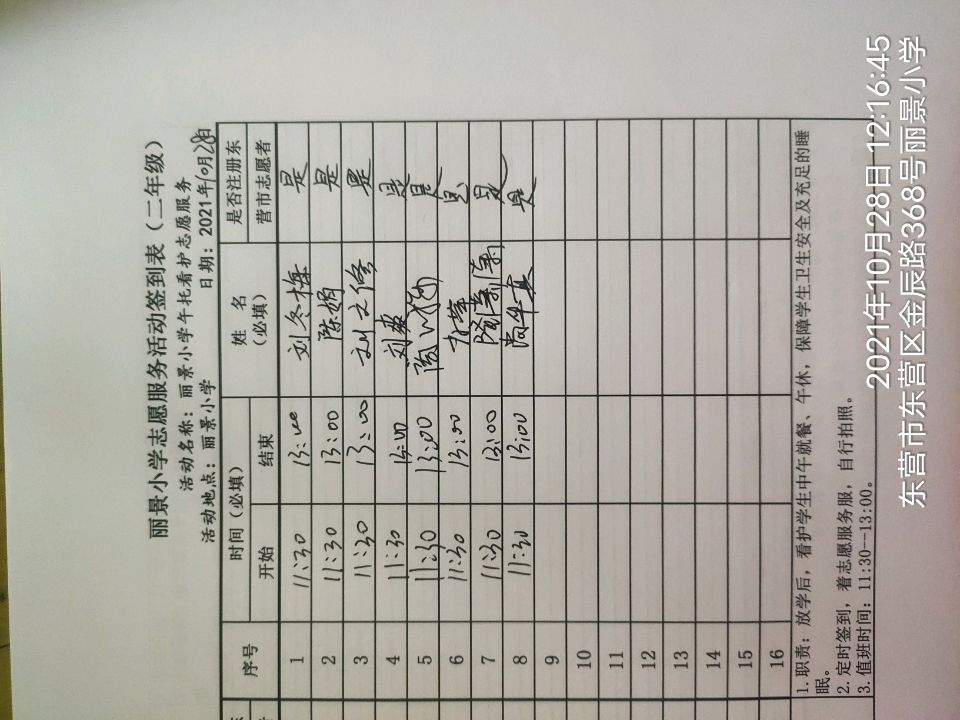 丽景小学志愿服务活动签到表（二年级）
活动名称：丽景小学午托看护志愿服务
活动地点：丽景小学 日期：2021年10月28日
序号 时间（必填） 姓名（必填） 是否注册东营市志愿者
开始 结束
1 11:30 13:00 刘冬梅 是
2 11:30 13:00 陈娟 是
3 11:30 13:00 刘文修 是
4 11:30 13:00 刘爽 是
5 11:30 13:00 是
6 11:30 13:00 是
7 11:30 13:00 是
8 11:30 13:00 尚华真 是
9
10
11
12
13
14
15
16
1.职责：放学后，看护学生中午就餐、午休，保障学生卫生安全及充足的睡
眠。
2.定时签到，着志愿服务服，自行拍照。
3.值班时间：11:30--13:00。
2021年10月28日 12:16:45
东营市东营区金辰路368号丽景小学